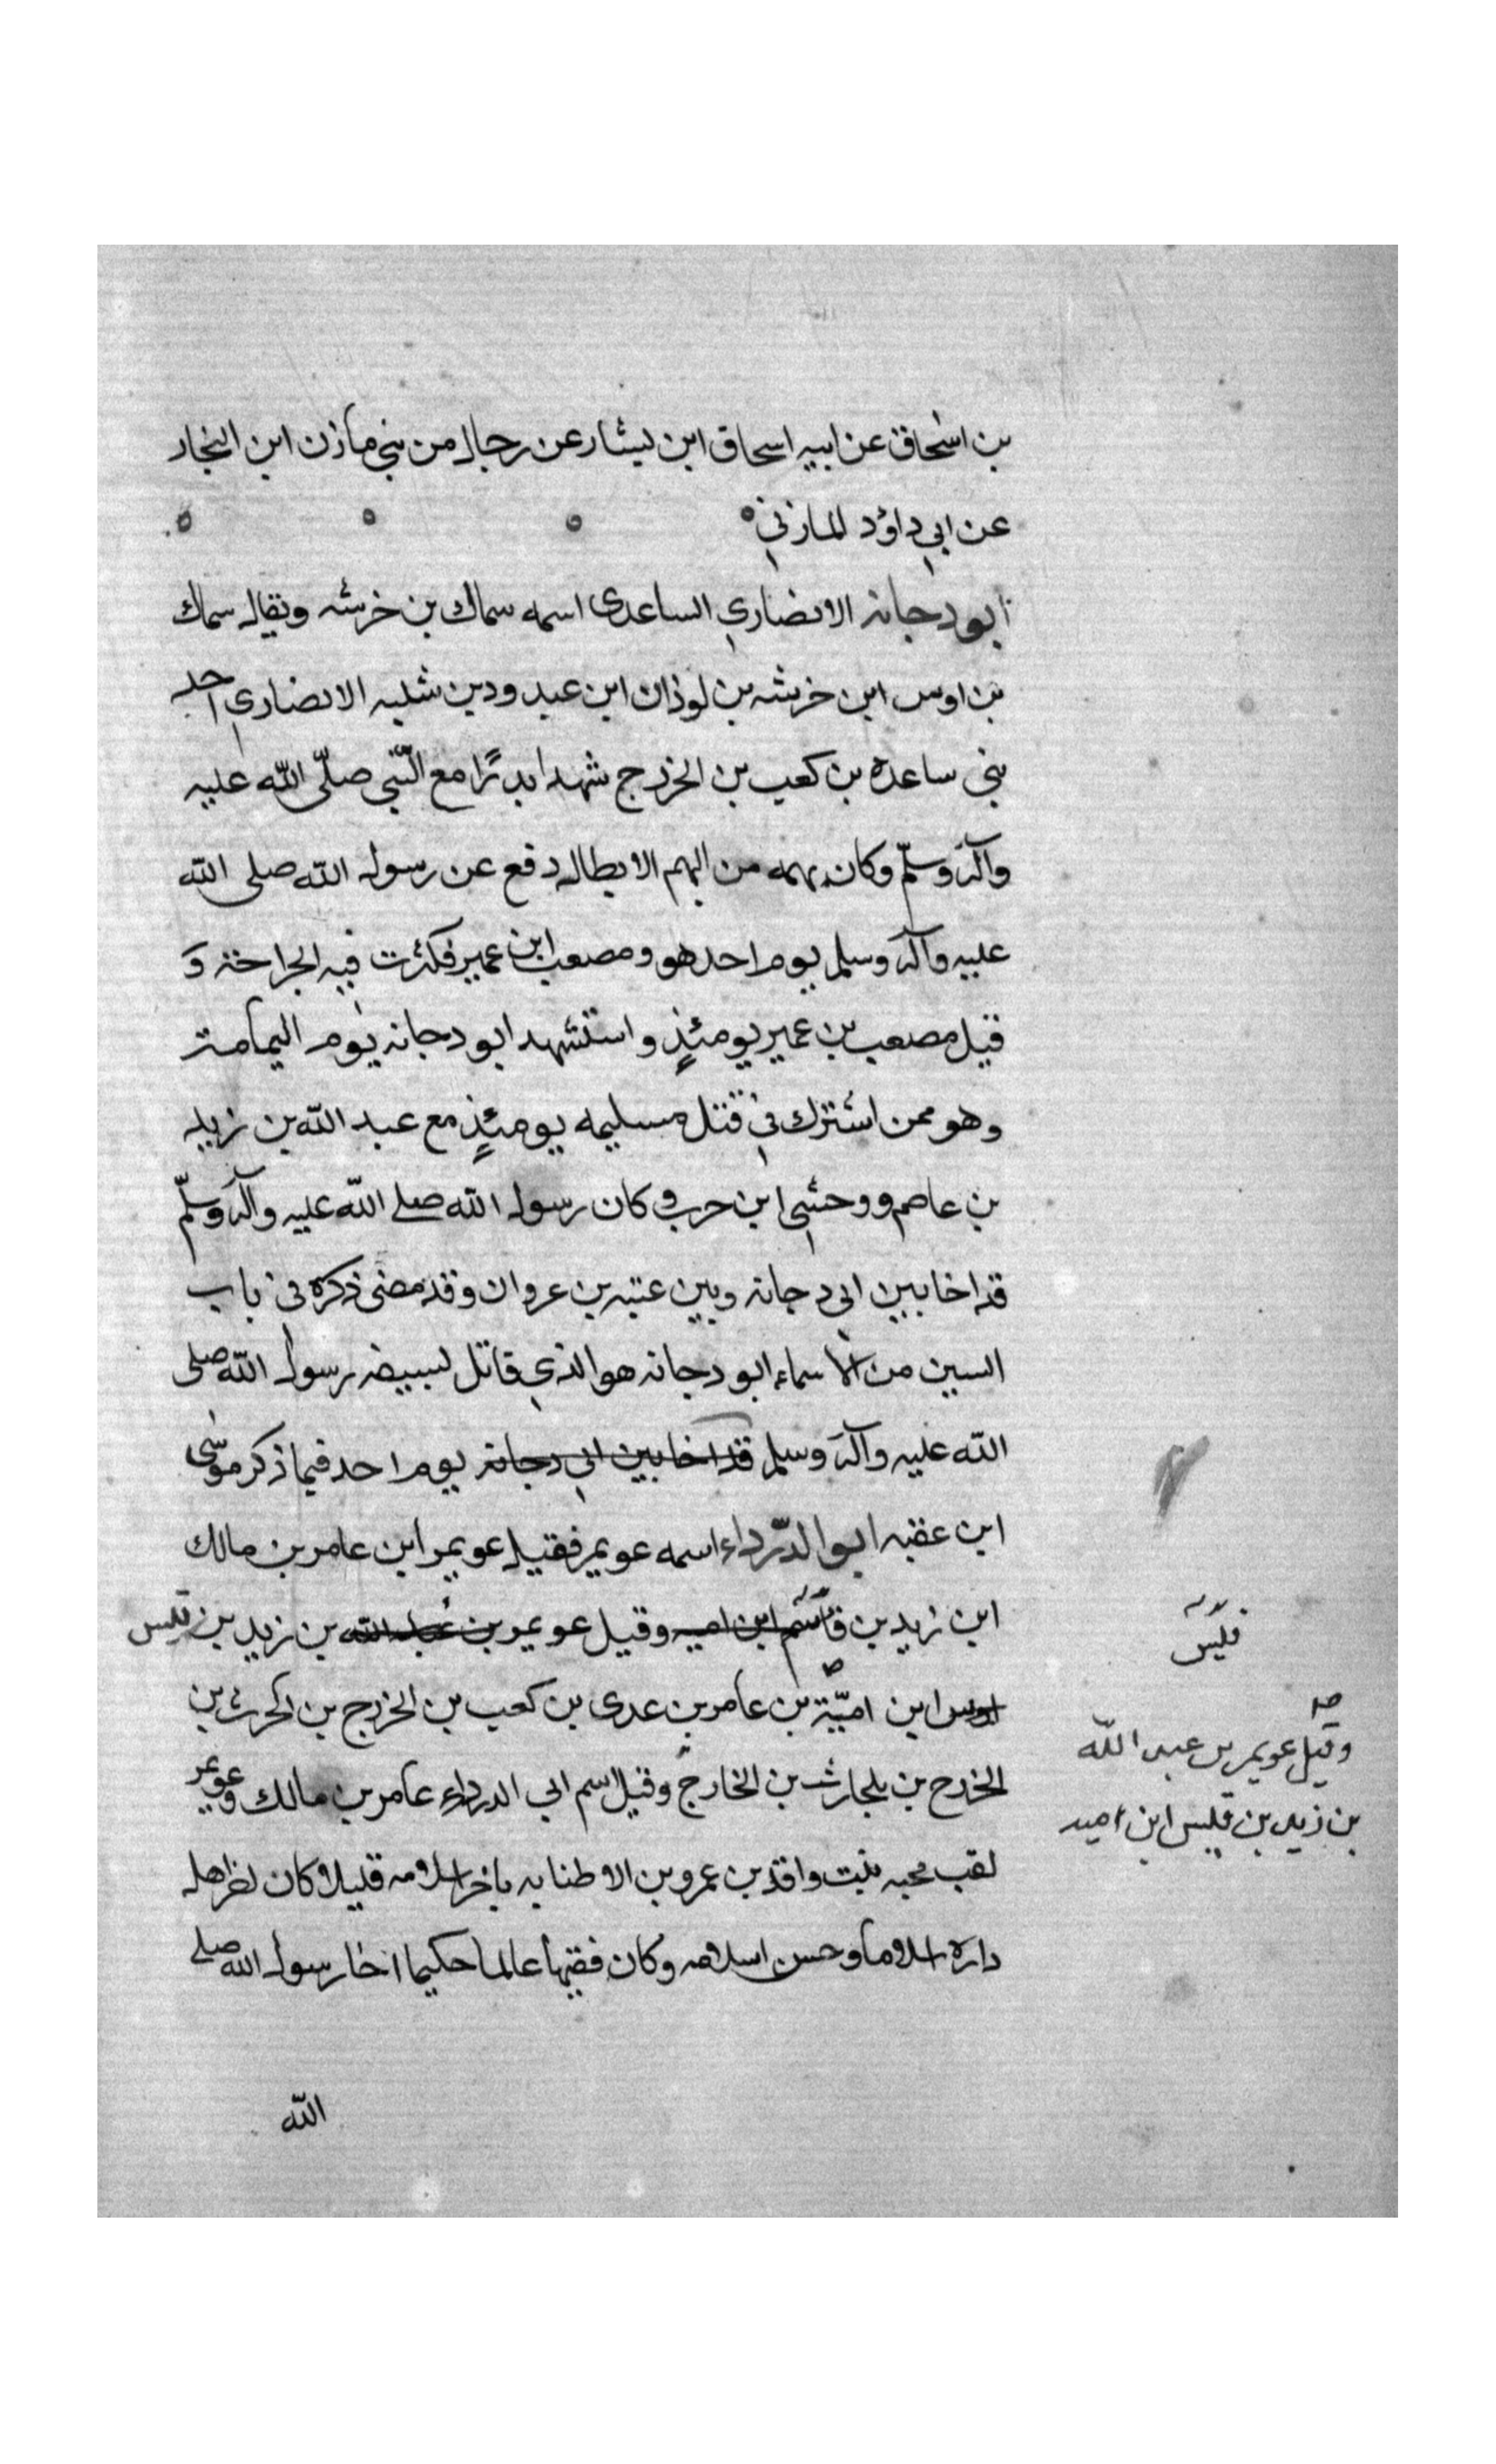 بن اسحاق عن ابيه اسحاق ابن يسار عن رجال من بني مازن ابن النجار
عن ابي داؤد المازني
ابو دجانه الانصاري الساعدى اسمه سماك بن خرشه ويقال سماك
بن اوس ابن خرشه بن لوذان ابن عبد ود بن ثعلبه الانصاري احد
بني ساعده بن كعب بن الخزرج شهد بدرًا مع النّبي صلّى اللّه عليه
وآله وسلّم وكان بهمه من البهم الابطال دفع عن رسول الله صلى الله
عليه وآله وسلم يوم احد هو ومصعب ابن عمير فكثرت فيه الجراحة و
قتل مصعب بن عمير يومئذٍ واستشهد ابو دجانه يوم اليمامة
وهو ممن اشترك في قتل مسليمه يومئذٍ مع عبد اللّه بن زيد
بن عاصم ووحشي ابن حرب وكان رسول الله صلے اللّه عليه وآله وسلّم
قد اخا بين ابي دجانة وبين عتبه بن عزوان وقد مضى ذكره في باب
السين من الاسماء ابو دجانه هو الذي قاتل رسول اللّه صلى
الله عليه وآله وسلم قد اخا بين ابي دجانة يوم احد فيما ذكر موسى
ابن عقبه ابو الدّرداء اسمه عويمر فقيل عويمر ابن عامر بن مالك
ابن زيد بن ابن اميه وقيل عويمر بن عبد الله بن زيد بن قيس
اوس ابن اميّة بن عامر بن عدى بن كعب بن الخزرج بن الحرث بن
الخزرج بن بلحارث بن الخارج وقيل اسم ابي الدرداء عامر بن مالك وعويمر
لقب محبه بنت واقد بن عمرو بن الاطنابه تاخر اسلامه قليلا كان اخر اهل
داره اسلاما وحسن اسلامه وكان فقيها عالما حكيما اخا رسول الله صلے
الله
قيس
صح
وقيل عويمر بن عبد اللّه
بن زيد بن قيس ابن اميه